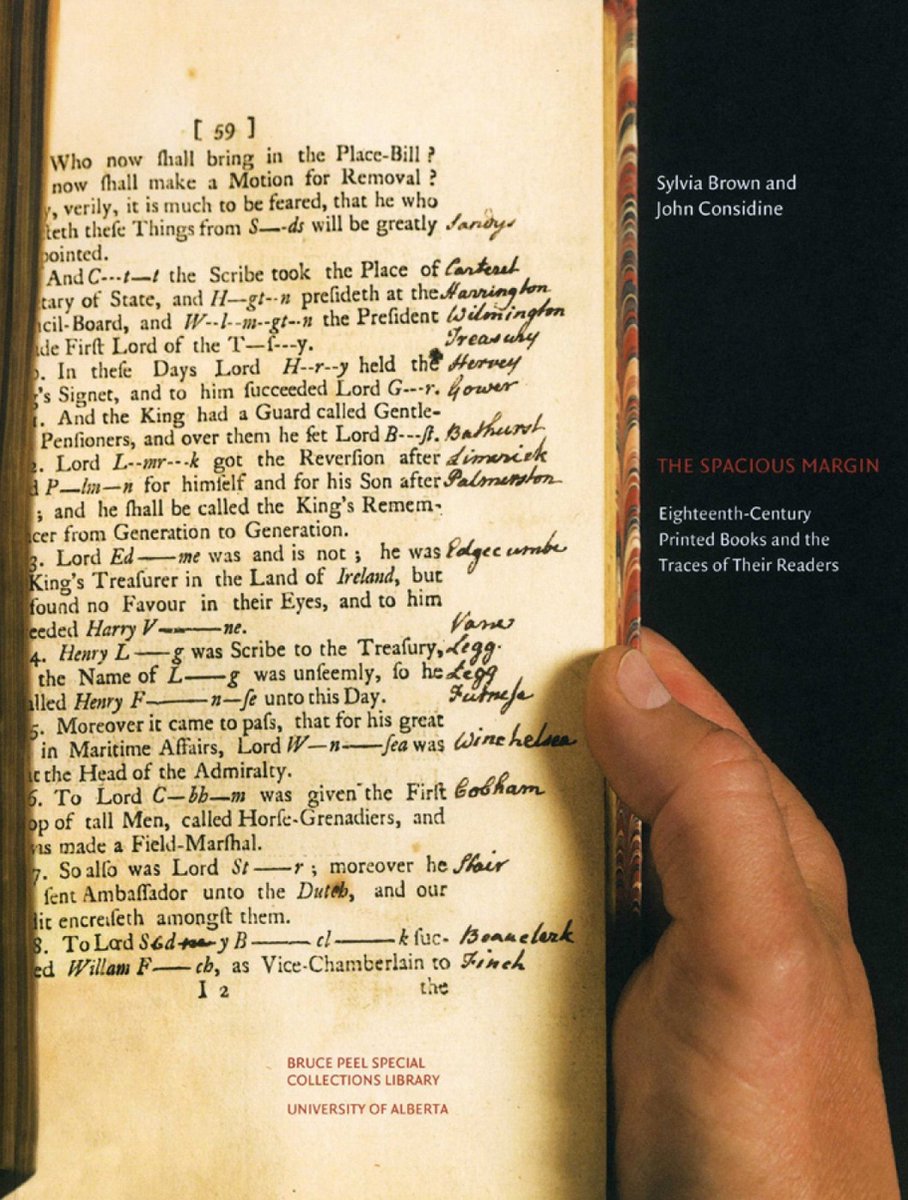 [ 59 ]
Who now ſhall bring in the Place-Bill ?
now ſhall make a Motion for Removal ?
y, verily, it is much to be feared, that he who
teth theſe Things from S—-ds will be greatly Sandys
pointed.
And C---t—t the Scribe took the Place of Carteret
tary of State, and H—gt--n preſideth at the Harrington
cil-Board, and W--l--m--gt--n the Preſident Wilmington
de Firſt Lord of the T—ſ---y. Treasury
. In theſe Days Lord H--r--y held the Hervey
's Signet, and to him ſucceeded Lord G---r. Gower
. And the King had a Guard called Gentle-
Penſioners, and over them he ſet Lord B---ſt. Bathurst
2. Lord L--mr---k got the Reverſion after Limerick
d P—lm—n for himſelf and for his Son after Palmerston
; and he ſhall be called the King's Remem-
cer from Generation to Generation.
3. Lord Ed——me was and is not ; he was Edgecumbe
King's Treaſurer in the Land of Ireland, but
found no Favour in their Eyes, and to him
eeded Harry V———ne. Vane
4. Henry L——g was Scribe to the Treaſury, Legg
the Name of L——g was unſeemly, ſo he Legg
alled Henry F———n—ſe unto this Day. Furneſe
5. Moreover it came to paſs, that for his great
in Maritime Affairs, Lord W—n——ſea was Winchelsea
t the Head of the Admiralty.
6. To Lord C—bb—m was given the Firſt Cobham
op of tall Men, called Horſe-Grenadiers, and
was made a Field-Marſhal.
7. So alſo was Lord St——r ; moreover he Stair
ſent Ambaſſador unto the Dutch, and our
dit encreiſeth amongſt them.
8. To Lord S d y B———cl———k ſuc- Beauclerk
ed Willam F——ch, as Vice-Chamberlain to Finch
I 2 the
BRUCE PEEL SPECIAL
COLLECTIONS LIBRARY
UNIVERSITY OF ALBERTA
Sylvia Brown and
John Considine
THE SPACIOUS MARGIN
Eighteenth-Century
Printed Books and the
Traces of Their Readers